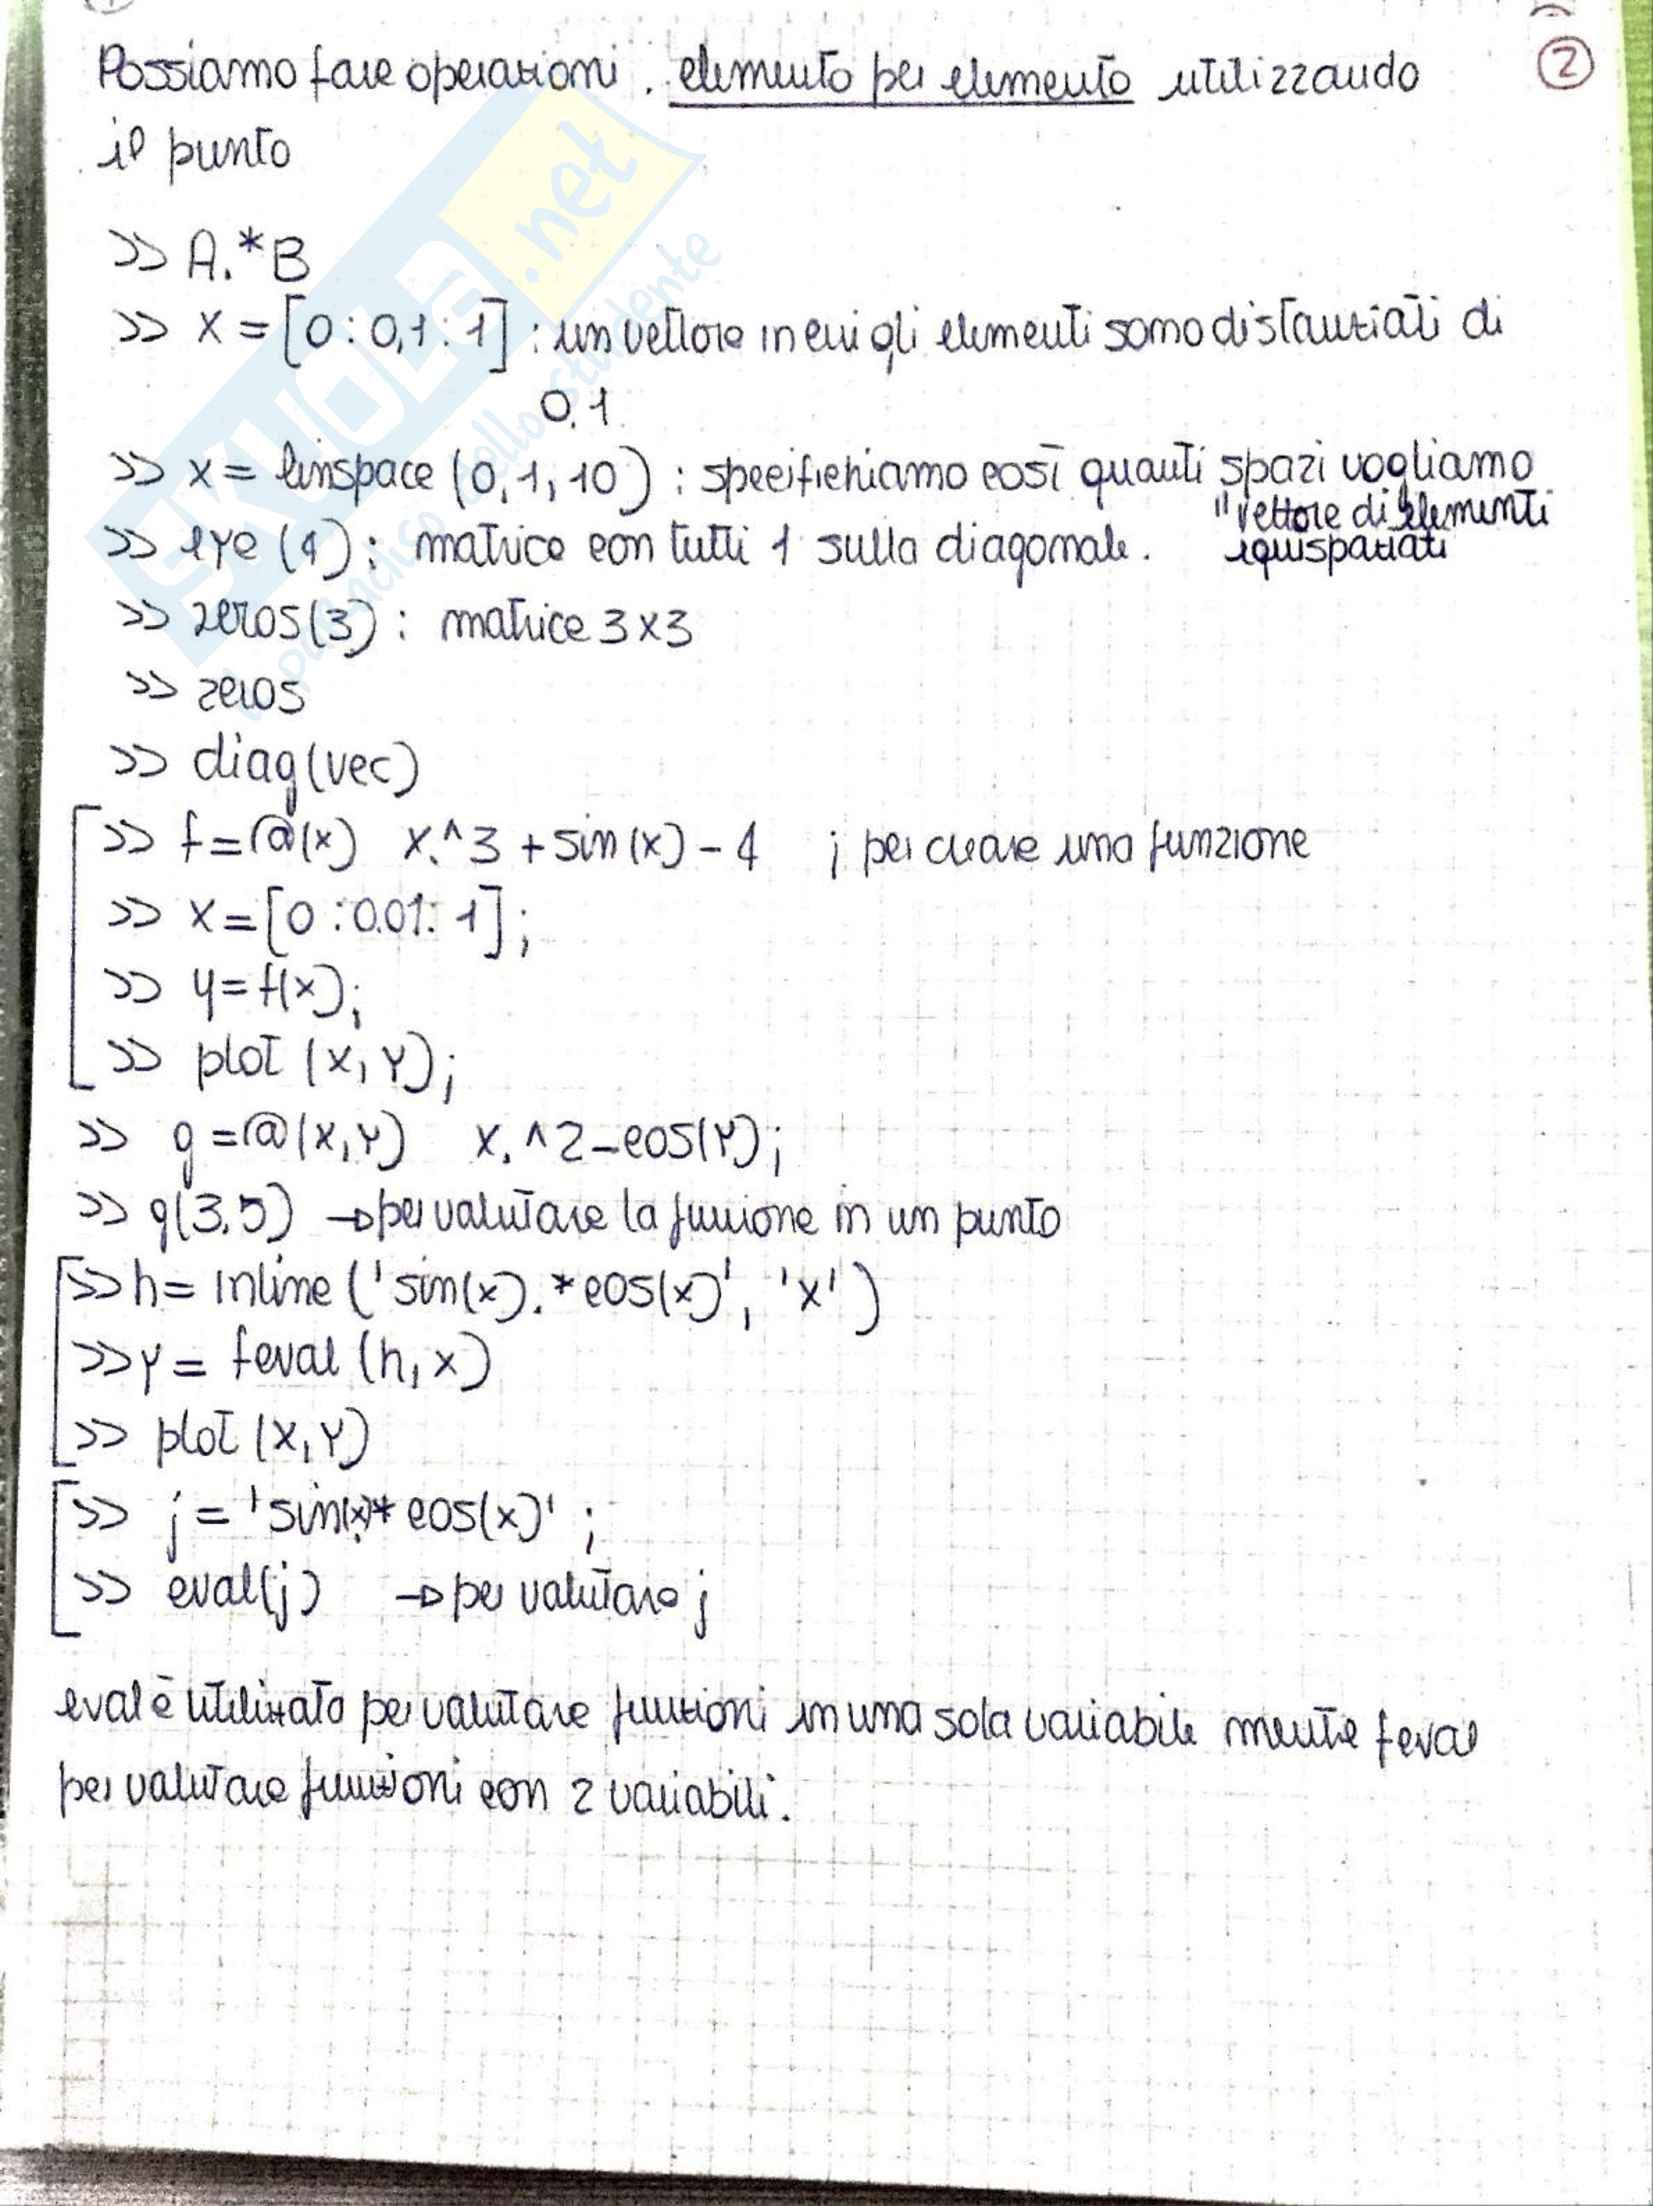 ②
Possiamo fare operazioni. elemento per elemento utilizzando
il punto
>> A.*B
>> x = [0 : 0,1 : 1] : un vettore in cui gli elementi sono distanziati di
0,1
>> x = linspace (0,1,10) : specifichiamo così quanti spazi vogliamo
"vettore di elementi
equispaziati
>> eye (4) : matrice con tutti 1 sulla diagonale.
>> zeros(3) : matrice 3x3
>> zeros
>> diag(vec)
>> f=@(x) x.^3 + sin(x) - 4 ; per creare una funzione
>> x=[0 :0.01: 1];
>> y=f(x);
>> plot (x,y);
>> g=@(x,y) x.^2-cos(y);
>> g(3,5) → per valutare la funzione in un punto
>> h= inline ('sin(x).*cos(x)', 'x')
>> y= feval (h,x)
>> plot (x,y)
>> j = 'sin(x).*cos(x)' ;
>> eval(j) → per valutare j
eval è utilizzato per valutare funzioni in una sola variabile mentre feval
per valutare funzioni con 2 variabili.
SKUOLA.net
il paradiso dello studente